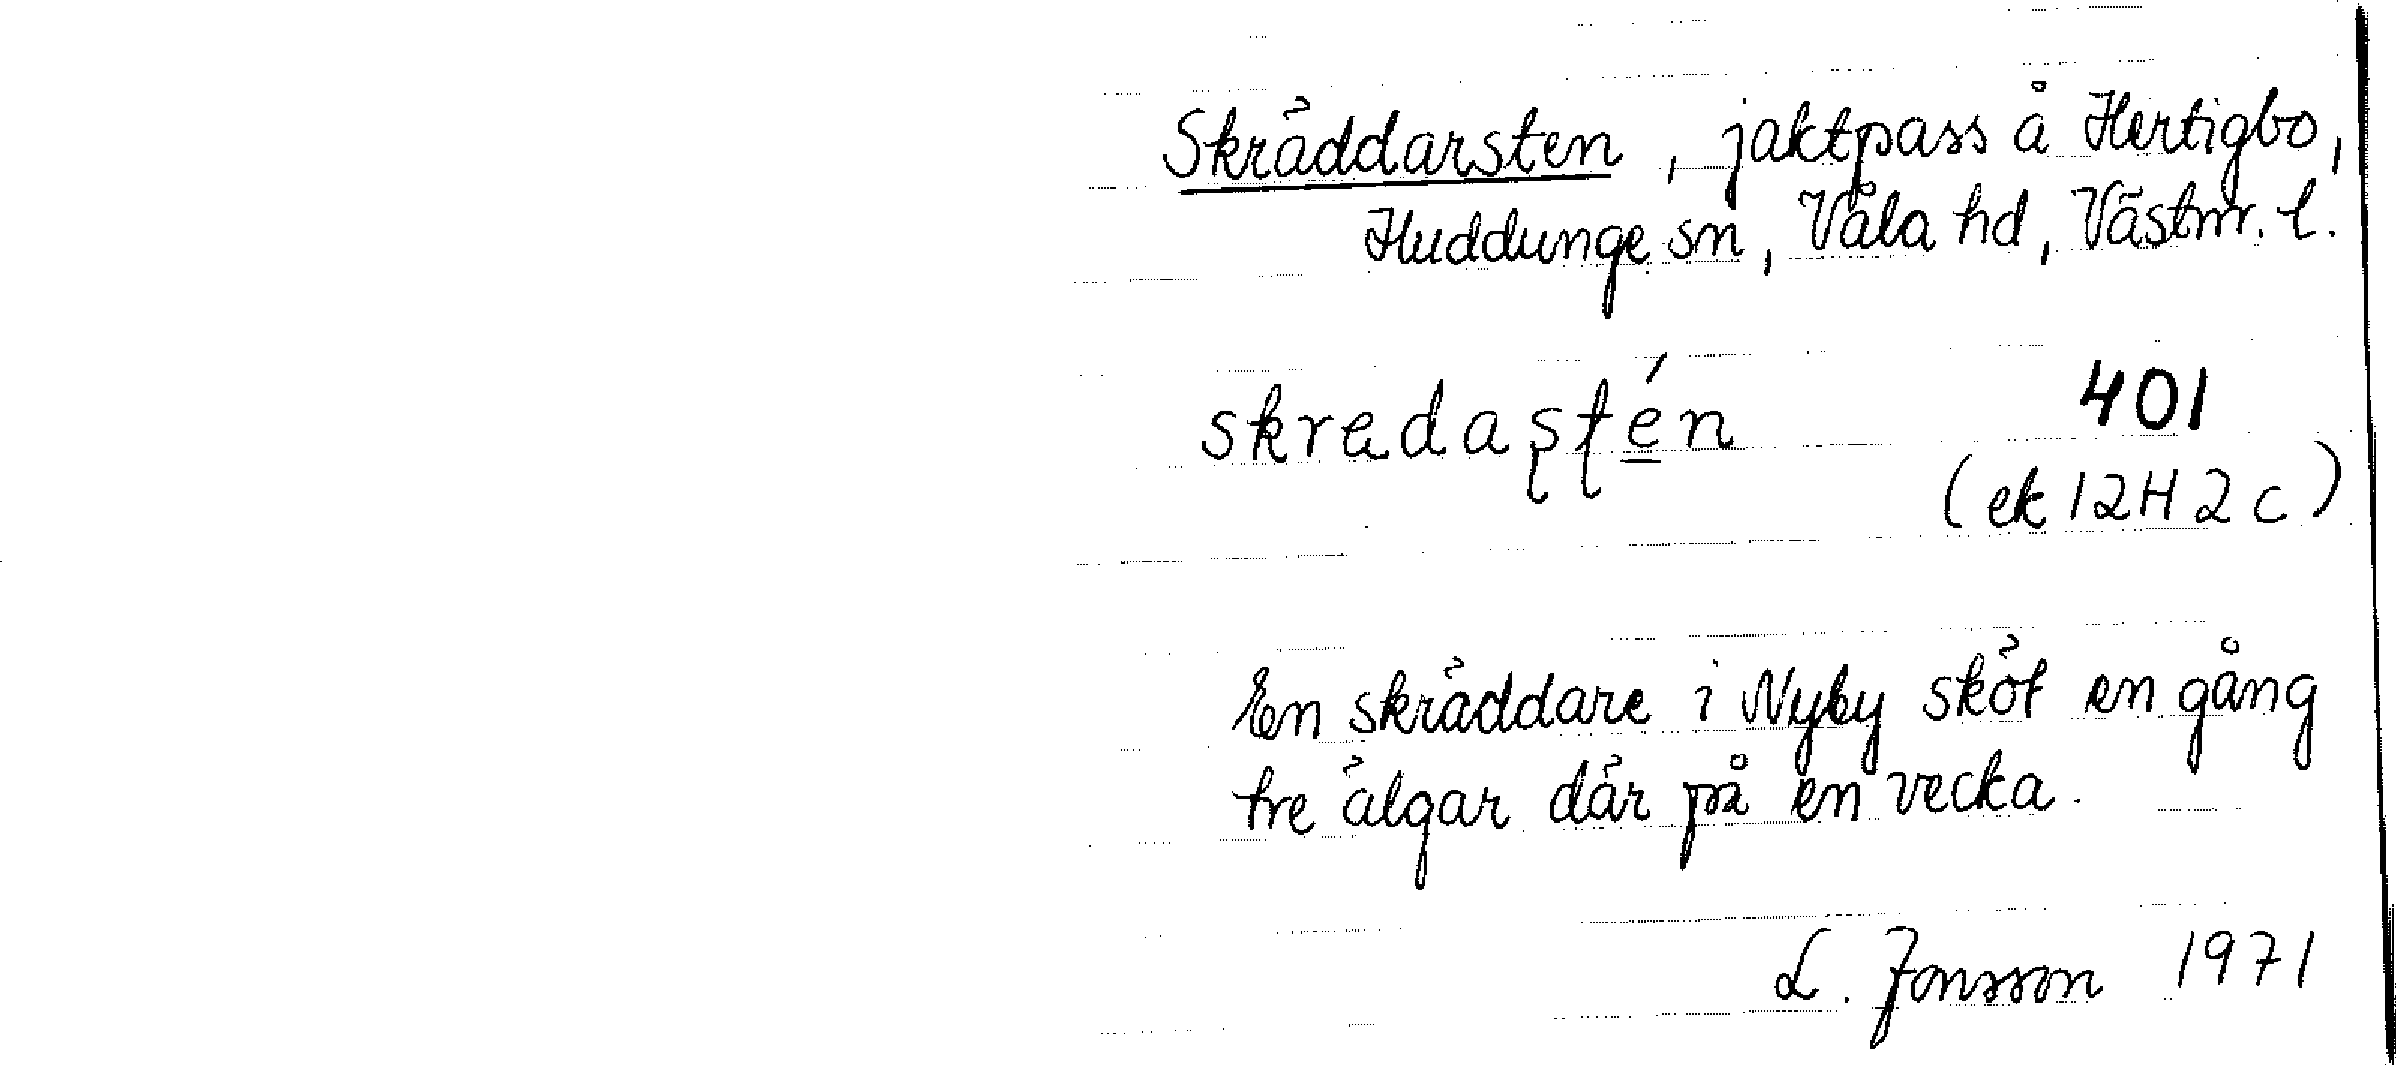 Skräddarsten, jaktpass å Hertigbo,
Huddunge sn, Våla hd, Västm. l.
skredaşţén 401
(ek 12H2c)
En skräddare i Nyby sköt en gång
tre älgar där på en vecka.
L. Jonsson 1971